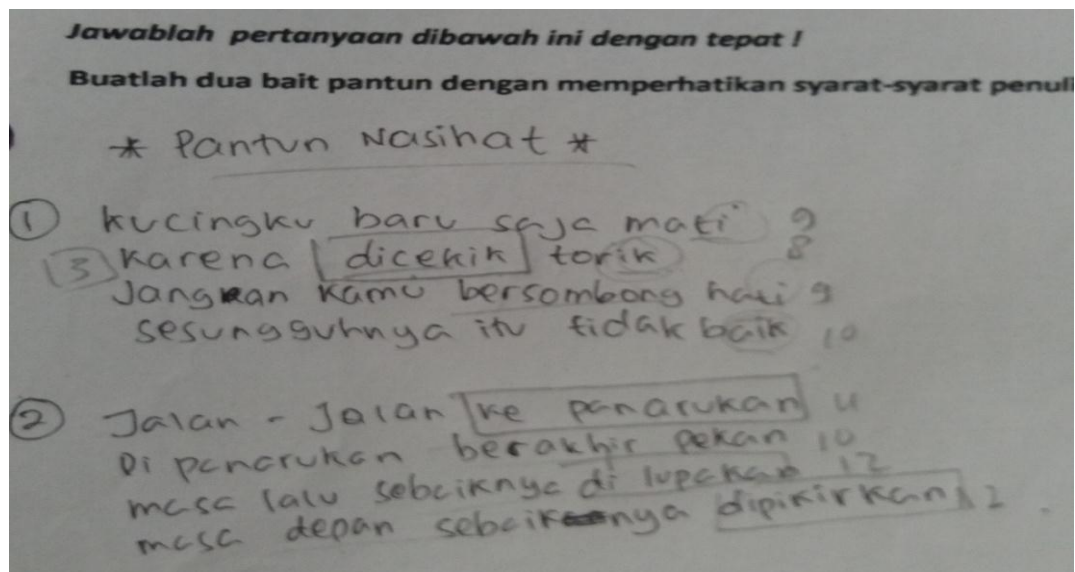 Jawablah pertanyaan dibawah ini dengan tepat !
Buatlah dua bait pantun dengan memperhatikan syarat-syarat penuli
* Pantun Nasihat *
1 kucingku baru saja mati 9
3 Karena dicekik torik 8
Jangkan kamu bersombong hati 9
sesungguhnya itu tidak baik 10
2 Jalan - Jalan ke panarukan 4
Di panarukan berakhir pekan 10
masa lalu sebaiknya di lupakan 12
masa depan sebaiknya dipikirkan 12